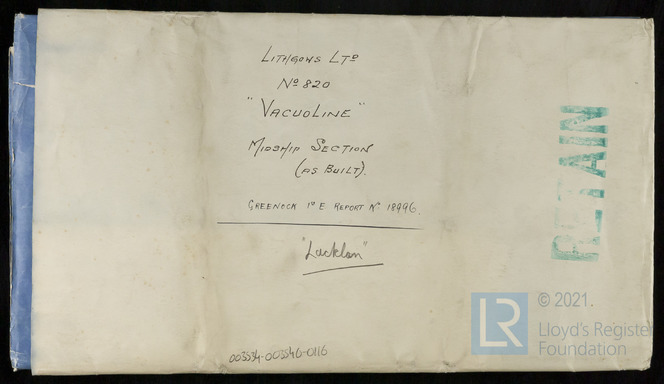 LITHGOWS LTD
No 820
"VACUOLINE"
MIDSHIP SECTION
(AS BUILT).
GREENOCK 1st E REPORT No 18996.
"Lucklon"
RETAIN
003534-003546-0116
LR
© 2021.
Lloyd's Register
Foundation